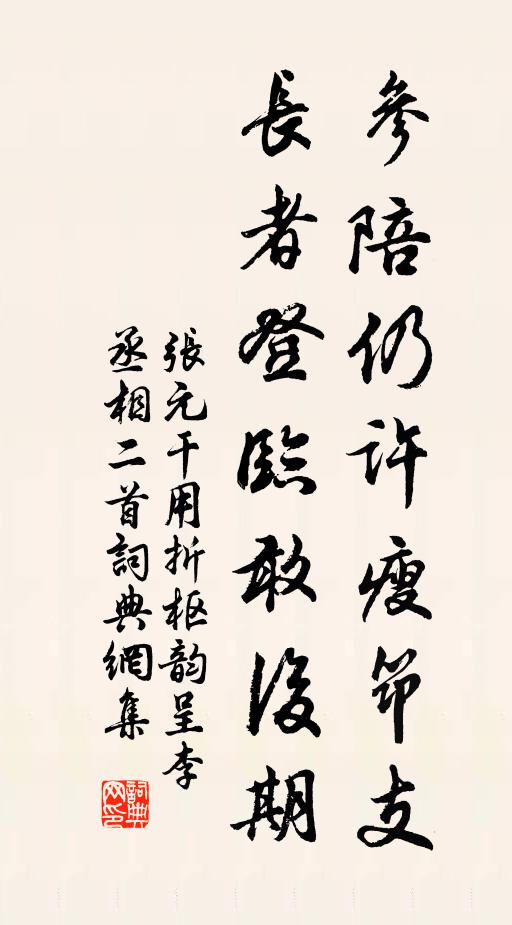 參陪仍许瘦笻支
長者登臨敢後期
張元干用折枢韵呈李
丞相二首詞典網集
詞典网印